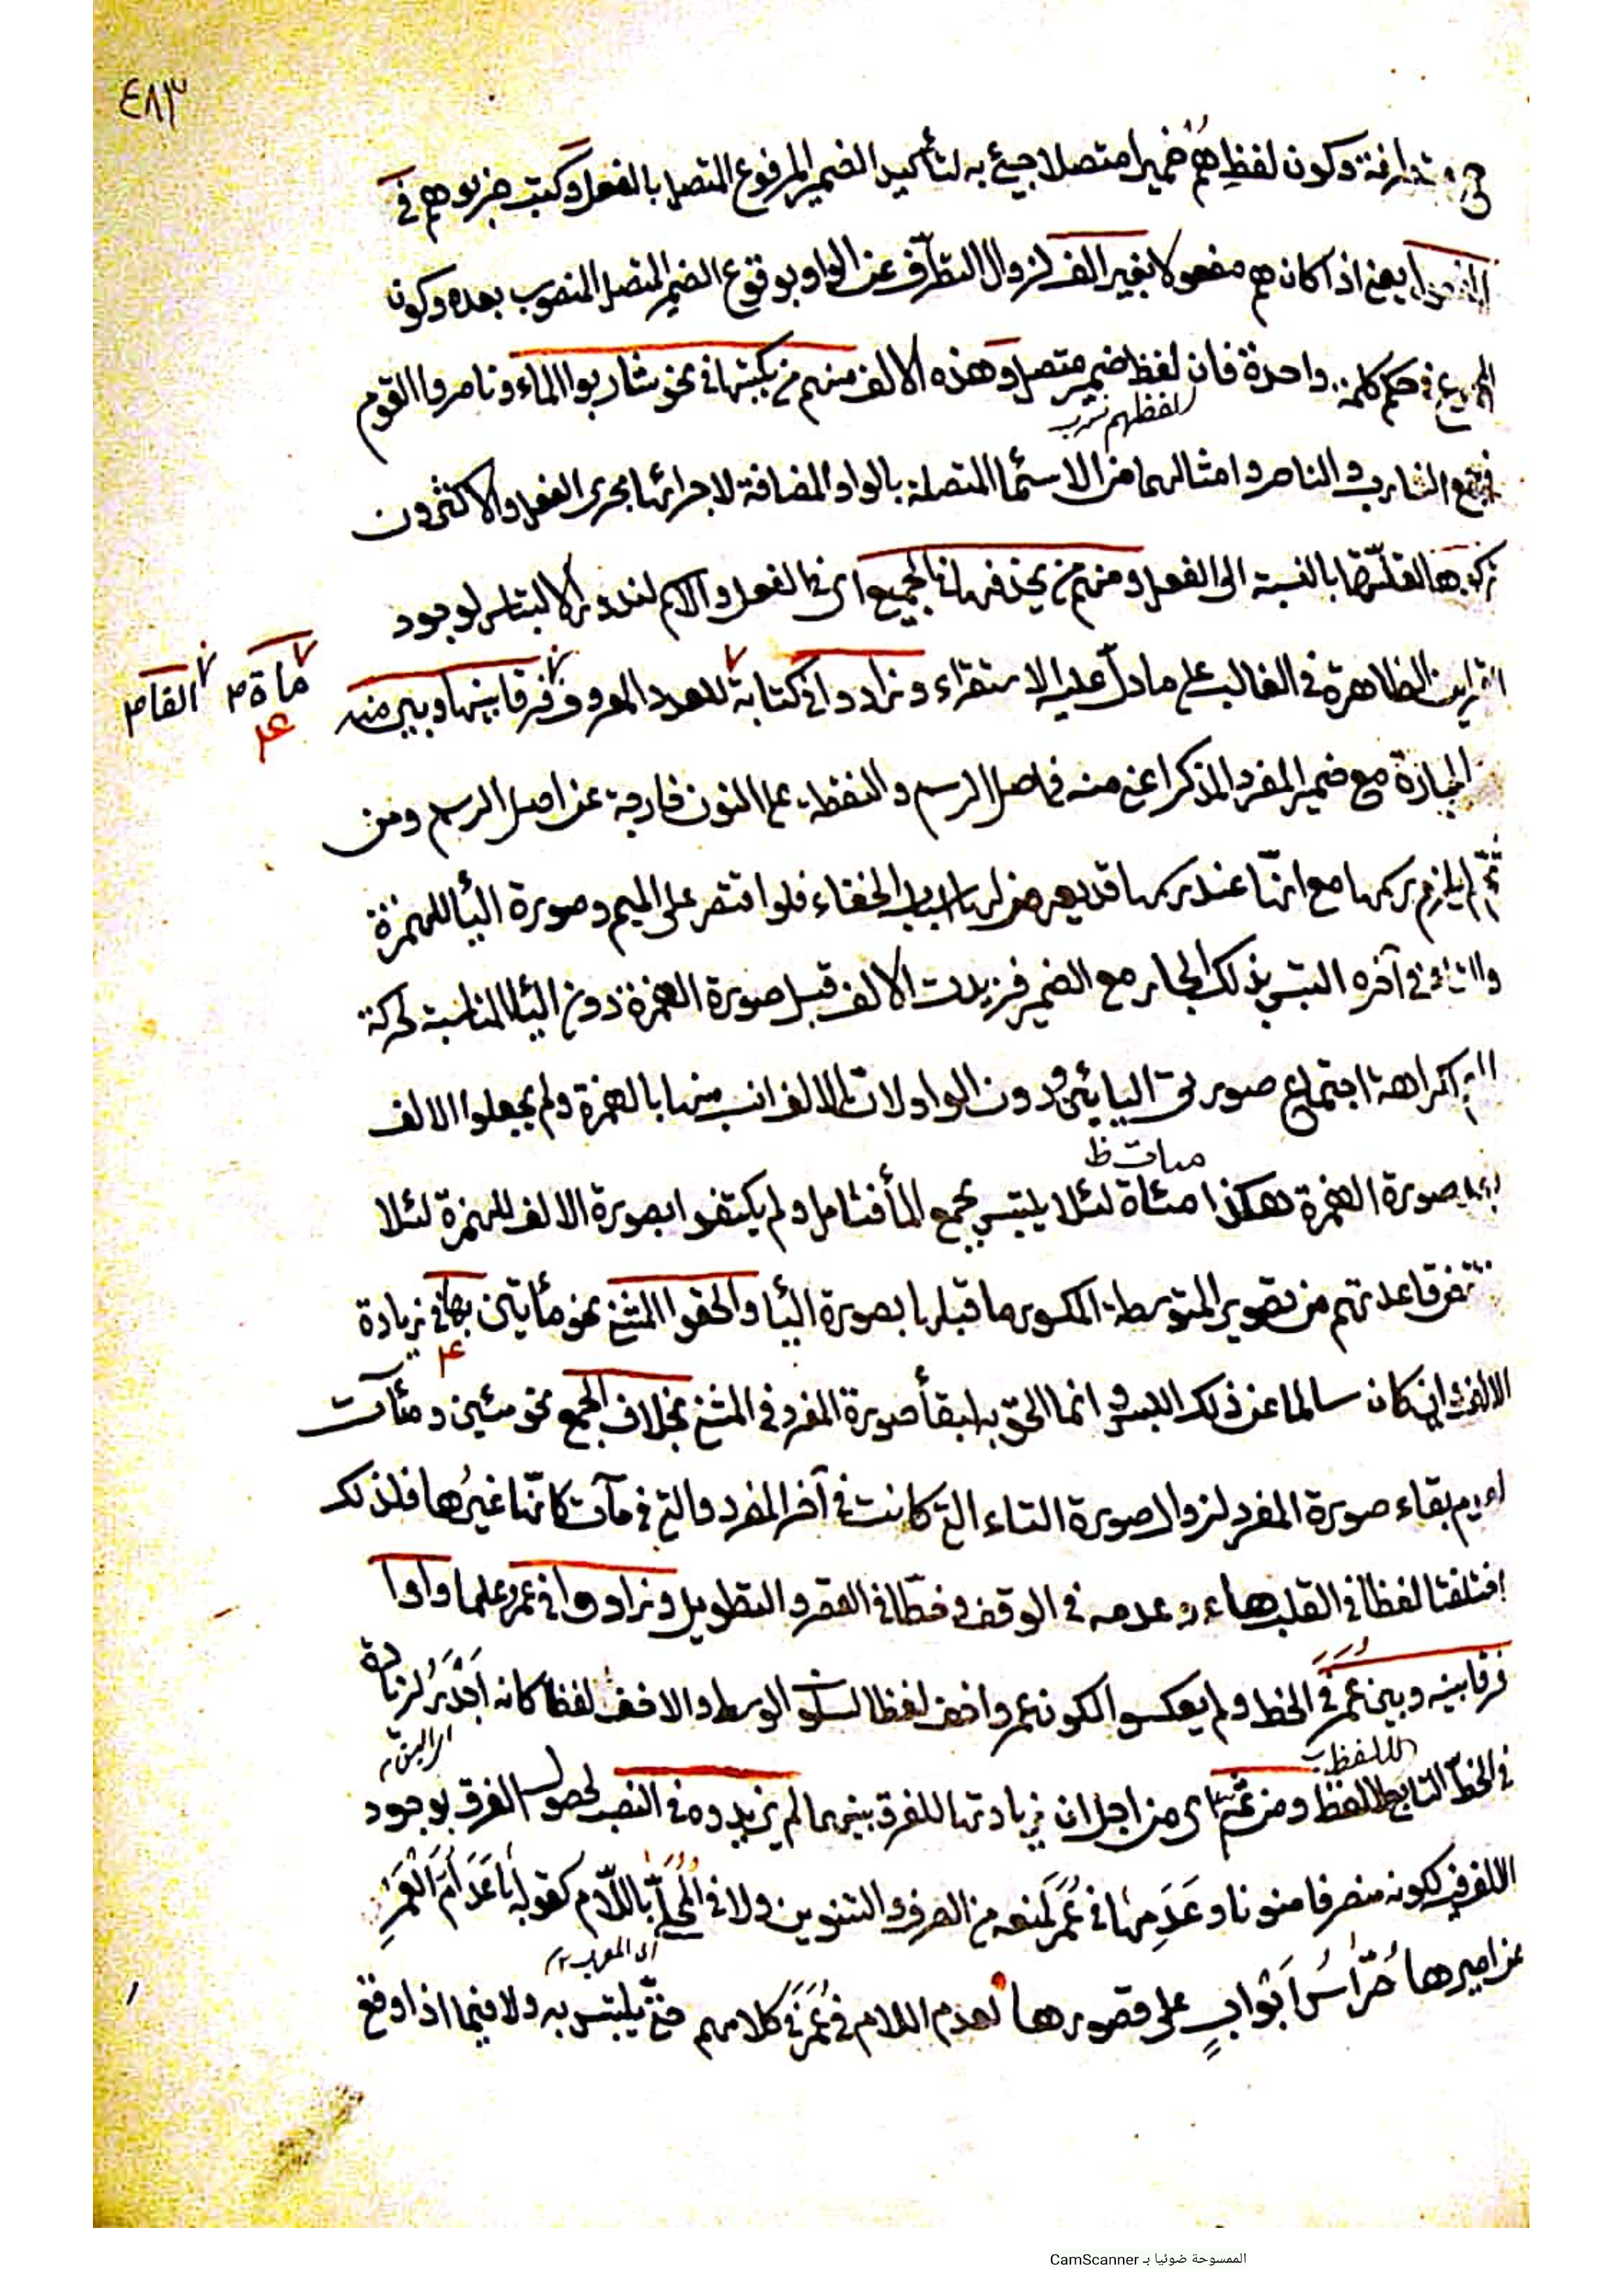 ٤٨٣
وكون لفظِ هُم ضميرا متصلا جيئ به لتأكيد الضمير المرفوع المتصل بالفعل وكتبت ضربوهم في
المفعول يعني اذا كان هم مفعولا بغير الف لزوال التطرّف عن الواو بوقوع الضمير المتصل المنصوب بعده وكون
المجموع في حكم كلمة واحدة فان لفظ ضمير متصل وهذه الالف منهم من يكتبها في نحو شاربوا الماء وناصروا القوم
لفظهم
الشارب والناصر وامثالهما من الاسماء المتصلة بالواو المضافة لاجرائها مجرى الفعل والاكثرون
بالنسبة الى الفعل ومنهم من يحذفها في الجميع اى في الفعل والاسم لندور الالتباس لوجود
القراين الظاهرة في الغالب على ما دلّ عليه الاستقراء وزادوا في كتابة للعدد المعروف فرقا بينها وبين منه
مأة الفا
الجارة مع ضمير المفرد المذكر اعني منه في اصل الرسم والنقطة على النون خارجة عن اصل الرسم ومن
ثمّ لم يلزم رسمها مع انّها عند رسمها قد يعرض لها اسباب الخفاء فلو اقتصر على الميم وصورة اليا للهمزة
والتاء في آخره التبس بذلك الجار مع الضمير فزيدت الالف قبل صورة الهمزة دون اليا المناسبة لحركة
كراهة اجتماع صورتى اليايين ودون الواو لان الالف انسب منها بالهمزة ولم يجعلوا الالف
مئات ظ
بعد صورة الهمزة هكذا مئاة لئلا يلتبس بجمع المأة فتأمل ولم يكتفوا بصورة الالف للهمزة لئلا
قاعدتهم من تصوير المتوسطة المكسور ما قبلها بصورة اليا والحقوا المثنى نحو مأيتين بها في زيادة
الالف وان كان سالما عن ذلك اللبس وانما الحق به لبقأ صورة المفرد في المثنى بخلاف الجمع نحو مئين ومئآت
لعدم بقاء صورة المفرد لزوال صورة التاء التي كانت في آخر المفرد والتي في مآت كانّها غيرُها فلذلك
اختلفتا لفظا في القلب هاء وعدمه في الوقف وخطّا في القصر والتطويل وزادوا في عمرو علما واوا
فرقا بينه وبين عُمَرَ في الخط ولم يعكسوا لكون عمرو اخف لفظا لسكون الوسط والاخف لفظا كانه اَجْدَرُ لزيادة
في الخطّ التابع للفظ ومن ثمّ اى من اجل ان زيادتها للفرق بينهما لم يزيدوه في النصب لحصول الفرق بوجود
للفظ
الالف لكونه منصرفا منونا وعَدَمِها في عُمَرَ لمنعه من الصرف والتنوين ولا في المحلّى باللّام كقوله بَاعَدَ اُمَّ الْعَمْرِ
من اسيرها حُرّاسُ اَبْوابٍ على قصورها لعدم اللام في عُمَرَ في كلامهم حتى يلتبس به ولا فيما اذا وقع
الممسوحة ضوئيا بـ CamScanner